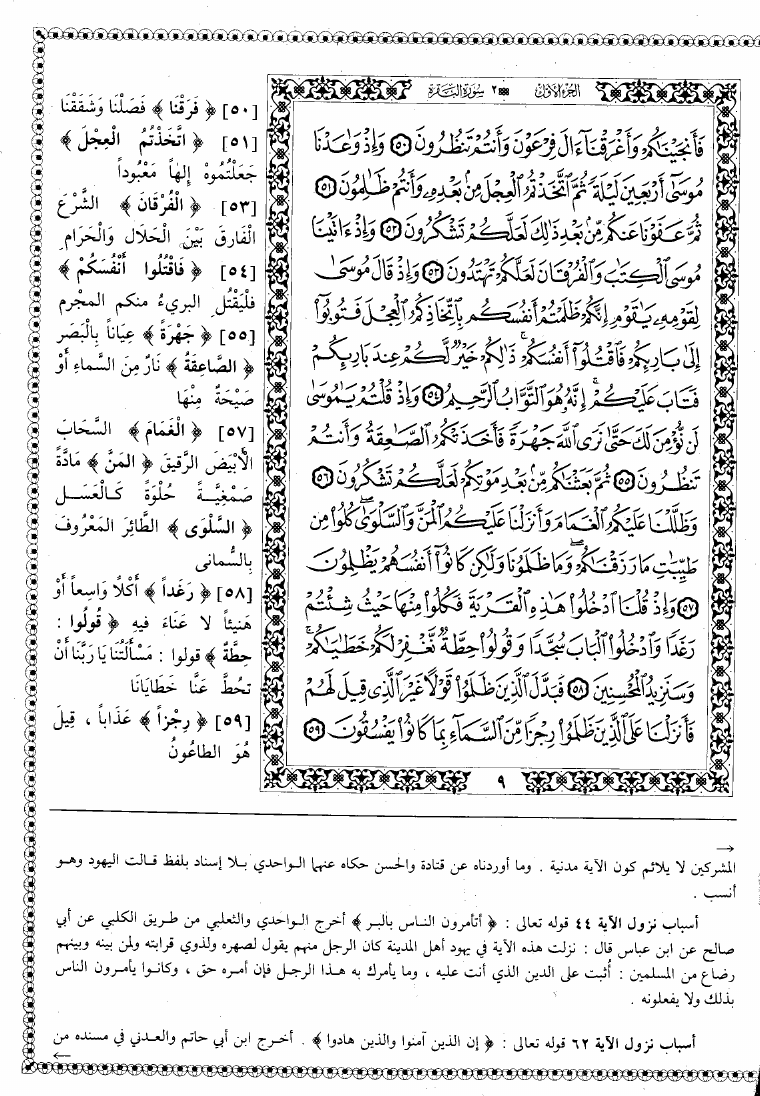 الجزء الأول ٢ سورة البقرة
فَأَنجَيْنَٰكُمْ وَأَغْرَقْنَآ ءَالَ فِرْعَوْنَ وَأَنتُمْ تَنظُرُونَ ٥٠ وَإِذْ وَٰعَدْنَا
مُوسَىٰٓ أَرْبَعِينَ لَيْلَةً ثُمَّ ٱتَّخَذْتُمُ ٱلْعِجْلَ مِنۢ بَعْدِهِۦ وَأَنتُمْ ظَٰلِمُونَ ٥١
ثُمَّ عَفَوْنَا عَنكُم مِّنۢ بَعْدِ ذَٰلِكَ لَعَلَّكُمْ تَشْكُرُونَ ٥٢ وَإِذْ ءَاتَيْنَا
مُوسَى ٱلْكِتَٰبَ وَٱلْفُرْقَانَ لَعَلَّكُمْ تَهْتَدُونَ ٥٣ وَإِذْ قَالَ مُوسَىٰ
لِقَوْمِهِۦ يَٰقَوْمِ إِنَّكُمْ ظَلَمْتُمْ أَنفُسَكُم بِٱتِّخَاذِكُمُ ٱلْعِجْلَ فَتُوبُوٓا۟
إِلَىٰ بَارِئِكُمْ فَٱقْتُلُوٓا۟ أَنفُسَكُمْ ذَٰلِكُمْ خَيْرٌ لَّكُمْ عِندَ بَارِئِكُمْ
فَتَابَ عَلَيْكُمْ ۚ إِنَّهُۥ هُوَ ٱلتَّوَّابُ ٱلرَّحِيمُ ٥٤ وَإِذْ قُلْتُمْ يَٰمُوسَىٰ
لَن نُّؤْمِنَ لَكَ حَتَّىٰ نَرَى ٱللَّهَ جَهْرَةً فَأَخَذَتْكُمُ ٱلصَّٰعِقَةُ وَأَنتُمْ
تَنظُرُونَ ٥٥ ثُمَّ بَعَثْنَٰكُم مِّنۢ بَعْدِ مَوْتِكُمْ لَعَلَّكُمْ تَشْكُرُونَ ٥٦
وَظَلَّلْنَا عَلَيْكُمُ ٱلْغَمَامَ وَأَنزَلْنَا عَلَيْكُمُ ٱلْمَنَّ وَٱلسَّلْوَىٰ ۖ كُلُوا۟ مِن
طَيِّبَٰتِ مَا رَزَقْنَٰكُمْ ۖ وَمَا ظَلَمُونَا وَلَٰكِن كَانُوٓا۟ أَنفُسَهُمْ يَظْلِمُونَ
٥٧ وَإِذْ قُلْنَا ٱدْخُلُوا۟ هَٰذِهِ ٱلْقَرْيَةَ فَكُلُوا۟ مِنْهَا حَيْثُ شِئْتُمْ
رَغَدًا وَٱدْخُلُوا۟ ٱلْبَابَ سُجَّدًا وَقُولُوا۟ حِطَّةٌ نَّغْفِرْ لَكُمْ خَطَٰيَٰكُمْ ۚ
وَسَنَزِيدُ ٱلْمُحْسِنِينَ ٥٨ فَبَدَّلَ ٱلَّذِينَ ظَلَمُوا۟ قَوْلًا غَيْرَ ٱلَّذِى قِيلَ لَهُمْ
فَأَنزَلْنَا عَلَى ٱلَّذِينَ ظَلَمُوا۟ رِجْزًا مِّنَ ٱلسَّمَآءِ بِمَا كَانُوا۟ يَفْسُقُونَ ٥٩
٩
[٥٠] ﴿ فَرَقْنَا ﴾ فَصَلْنَا وَشَقَقْنَا
[٥١] ﴿ اتَّخَذْتُمُ الْعِجْلَ ﴾
جَعَلْتُمُوهُ إِلهَاً مَعْبُوداً
[٥٣] ﴿ الْفُرْقَانَ ﴾ الشَّرْعَ
الْفَارِقَ بَيْنَ الْحَلَالِ وَالْحَرَامِ
[٥٤] ﴿ فَاقْتُلُوا أَنْفُسَكُمْ ﴾
فَلْيَقْتُلِ البريءُ منكم المجْرم
[٥٥] ﴿ جَهْرَةً ﴾ عِيَاناً بِالْبَصَرِ
﴿ الصَّاعِقَةُ ﴾ نَارٌ مِنَ السَّمَاءِ أَوْ
صَيْحَةٌ مِنْهَا
[٥٧] ﴿ الْغَمَامَ ﴾ السَّحَابَ
الْأَبْيَضَ الرَّقِيقَ ﴿ المَنَّ ﴾ مَادَّةً
صَمْغِيَّةً حُلْوَةً كَالْعَسَلِ
﴿ السَّلْوَى ﴾ الطَّائِرَ الْمَعْرُوفَ
بِالسُّمانى
[٥٨] ﴿ رَغَداً ﴾ أَكْلاً وَاسِعاً أَوْ
هَنِيئاً لَا عَنَاءَ فِيهِ ﴿ قُولُوا :
حِطَّةٌ ﴾ قولوا : مَسْأَلَتُنَا يَا رَبَّنَا أَنْ
تَحُطَّ عَنَّا خَطَايَانَا
[٥٩] ﴿ رِجْزاً ﴾ عَذَاباً ، قِيلَ
هُوَ الطاعُونُ
المشركين لا يلائم كون الآية مدنية . وما أوردناه عن قتادة والحسن حكاه عنهما الواحدي بلا إسناد بلفظ قالت اليهود وهو
أنسب .
أسباب نزول الآية ٤٤ قوله تعالى : ﴿ أتأمرون الناس بالبر ﴾ أخرج الواحدي والثعلبي من طريق الكلبي عن أبي
صالح عن ابن عباس قال : نزلت هذه الآية في يهود أهل المدينة كان الرجل منهم يقول لصهره ولذوي قرابته ولمن بينه وبينهم
رضاع من المسلمين : أثبت على الدين الذي أنت عليه ، وما يأمرك به هذا الرجل فإن أمره حق ، وكانوا يأمرون الناس
بذلك ولا يفعلونه .
أسباب نزول الآية ٦٢ قوله تعالى : ﴿ إن الذين آمنوا والذين هادوا ﴾ . أخرج ابن أبي حاتم والعدني في مسنده من